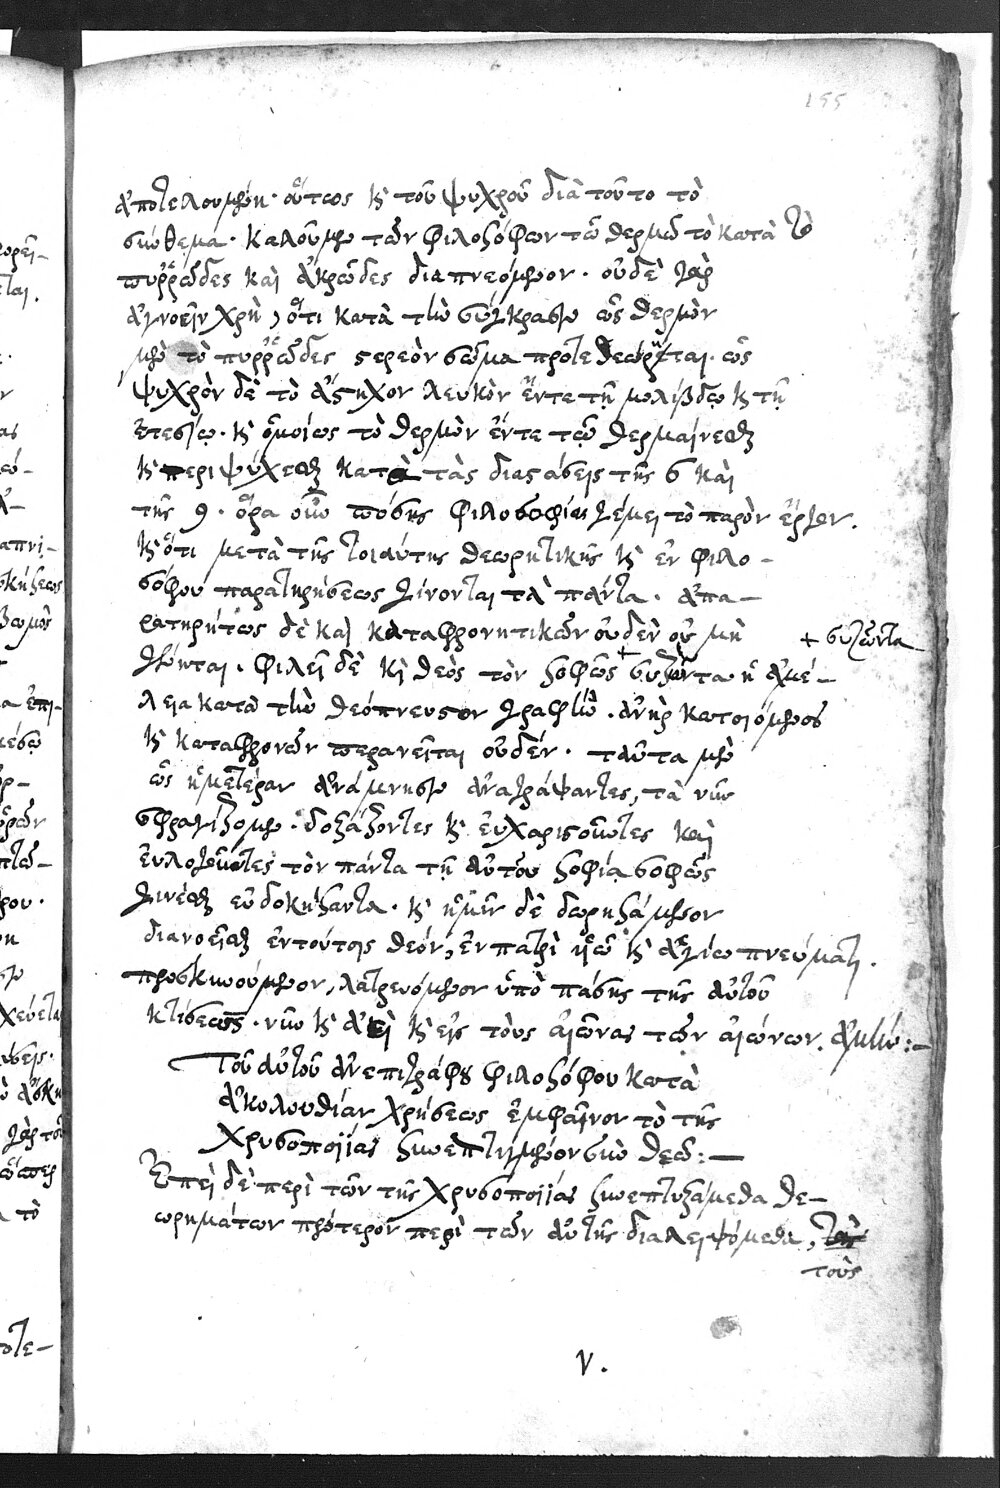 155
ἀποτελουμένη. οὕτως καὶ τοῦ ψυχροῦ διὰ τοῦτο τὸ
σύνθεμα. καλοῦμεν τῶν φιλοσόφων τῶ θερμῶ τὸ κατὰ τὸ
πυρρῶδες καὶ ἀκρῶδες διαπνεόμενον. οὐδὲ γὰρ
ἀγνοεῖν χρὴ, ὅτι κατὰ τὴν σύγκρασιν ὡς θερμὸν
μὲν τὸ πυρρῶδες στερεὸν σῶμα προτεθεώρηται. ὡς
ψυχρὸν δὲ τὸ ἄστηχον λευκὸν ἔντε τῇ μολίβδῳ καὶ τῇ
ἐτεσίῳ. καὶ ὁμοίως τὸ θερμὸν ἔντε τῷ θερμαίνεσθαι
καὶ περιψύχεσθαι κατὰ τὰς διαστάσεις τῆς καὶ
τῆς . ὅρα οὖν πόσης φιλοσοφίας γέμει τὸ παρὸν ἔργον.
καὶ ὅτι μετὰ τῆς τοιαύτης θεωρητικῆς καὶ ἐν φιλο-
σόφου παρατηρήσεως γίνονται τὰ πάντα. ἀπα-
ρατηρήτως δὲ καὶ καταφρονητικῶν οὐδὲν οὐ μὴ
γένηται. φιλεῖ δὲ καὶ θεὸς τὸν σοφῶς + συζῶντα ἢ ἀμέ-
+ συζῶντα
λεια κατὰ τὴν θεόπνευστον γραφὴν. ἀνὴρ κατοιόμενος
καὶ καταφρονῶν περανεῖται οὐδέν. ταῦτα μὲν
ὡς ἡμετέραν ἀνάμνησιν ἀναγράψαντες, τὰ νῦν
σφραγίζομεν. δοξάζοντες καὶ εὐχαριστοῦντες καὶ
εὐλογοῦντες τὸν πάντα τῇ αὐτοῦ σοφίᾳ σοφῶς
γινέσθαι εὐδοκήσαντα. καὶ ἡμῖν δὲ δωρησάμενον
διανοεῖσθαι ἐντούτοις θεόν, ἐν πατρὶ υἱῷ καὶ ἁγίῳ πνεύματι.
προσκυνούμενον, λατρευόμενον ὑπὸ πάσης τῆς αὐτοῦ
κτίσεως. νῦν καὶ ἀεὶ καὶ εἰς τοὺς αἰῶνας τῶν αἰώνων. ἀμήν:—
Τοῦ αὐτοῦ ἀνεπιγράφου φιλοσόφου κατὰ
ἀκολουθίαν χρήσεως ἐμφαῖνον τὸ τῆς
χρυσοποιίας συνεπτυγμένον σὺν θεῷ:—
Ἐπεὶ δὲ περὶ τῶν τῆς χρυσοποιίας συνεπτυξάμεθα θε-
ωρημάτων πρότερον περὶ τῶν αὐτῆς διαλειψόμεθα,
τοὺς
ν.